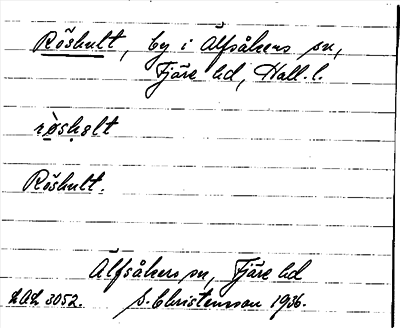 Röshult, by i Älfsåkers sn,
Fjäre hd, Hall. l.
rǿshəlt
Röshult.
Älfsåkers sn, Fjäre hd
LAL 3052. S. Christensson 1936.